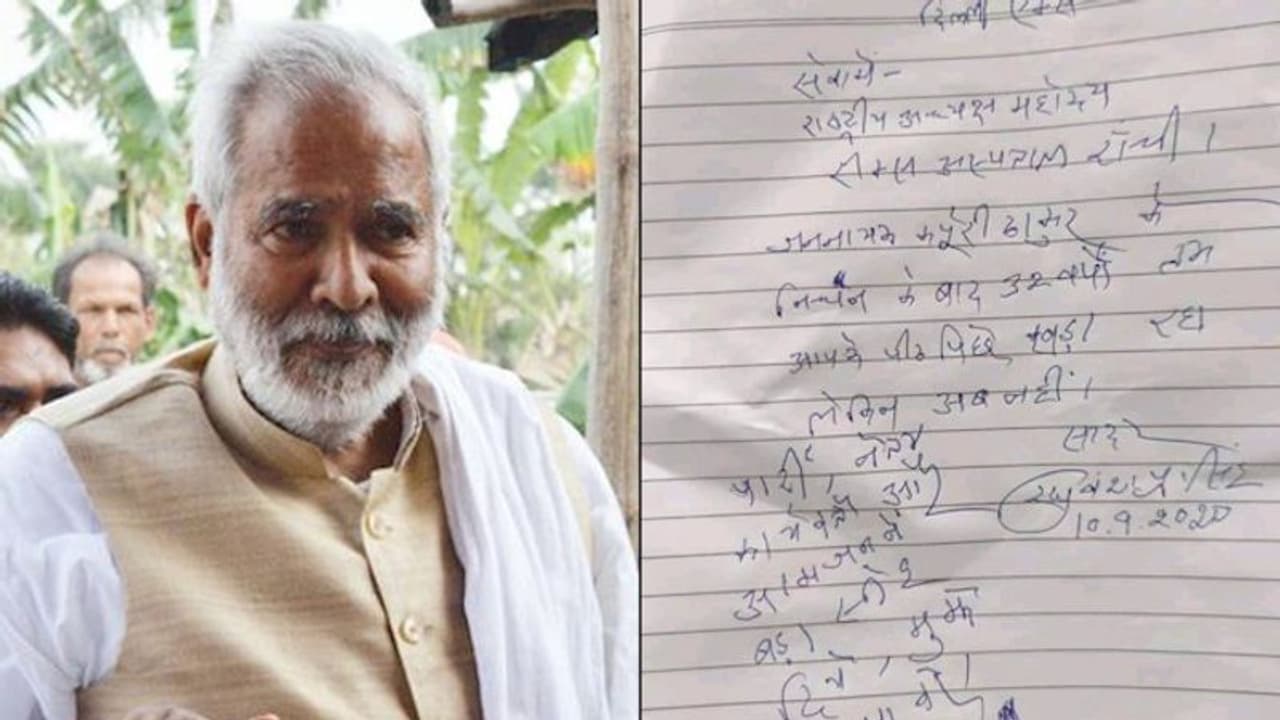 दिल्ली एम्स
सेवामें-
राष्ट्रीय अध्यक्ष महोदय
रिम्स अस्पताल राँची।
जननायक कर्पूरी ठाकुर के
निधन के बाद 32 वर्षों तक
आपके पीठ पिछे खड़ा रहा
लेकिन अब नहीं।
पार्टी, नेता
कार्यकर्ता और
आमजन ने
बड़ा स्नेह
दिया, मुझे
सादर
रघुवंश प्र. सिंह
10.9.2020